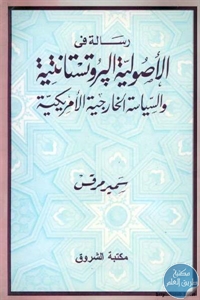 رسالة فى
الأصولية البروتستانتية
والسياسة الخارجية الأمريكية
سمير مرقس
مكتبة الشروق
مكتبة
طريق العلم